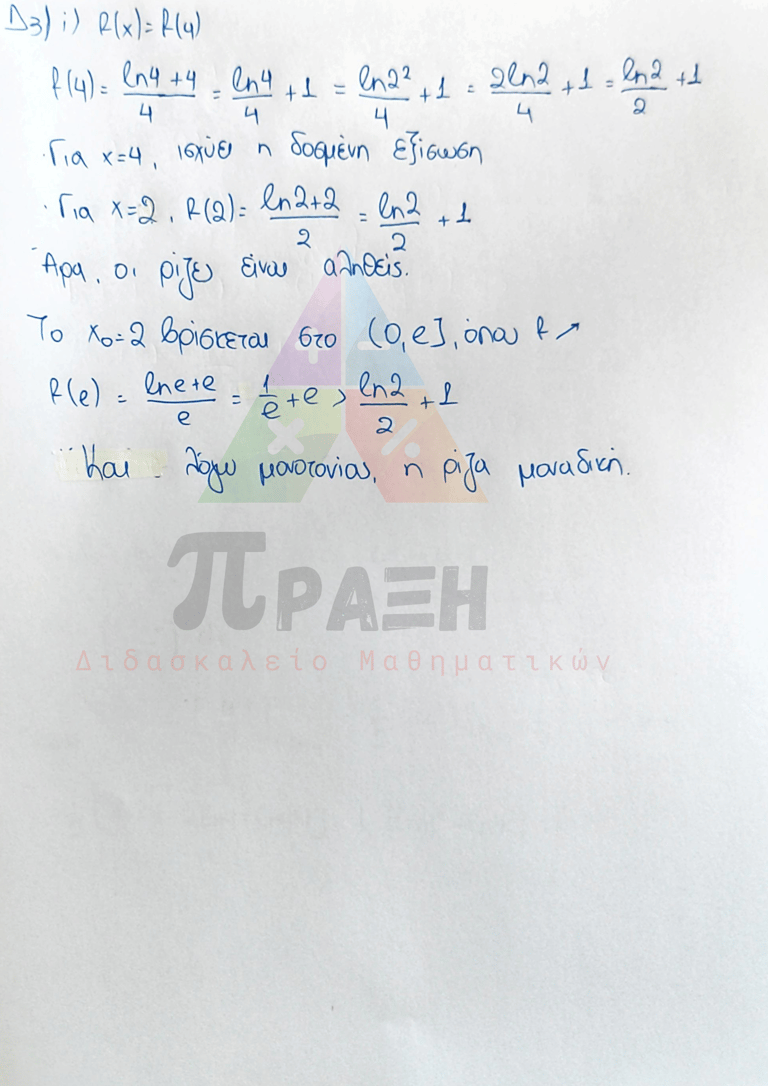 Δ3) i) f(x) = f(4)
f(4) = (ln4 + 4)/4 = ln4/4 + 1 = ln2²/4 + 1 = 2ln2/4 + 1 = ln2/2 + 1
· Για x=4, ισχύει η δοσμένη εξίσωση
· Για x=2, f(2) = (ln2+2)/2 = ln2/2 + 1
Άρα, οι ρίζες είναι αληθείς.
Το x₀=2 βρίσκεται στο (0,e], όπου f ↗
f(e) = (lne+e)/e = 1/e + e > ln2/2 + 1
Και λόγω μονοτονίας, η ρίζα μοναδική.
πΡΑΞΗ
Διδασκαλείο Μαθηματικών